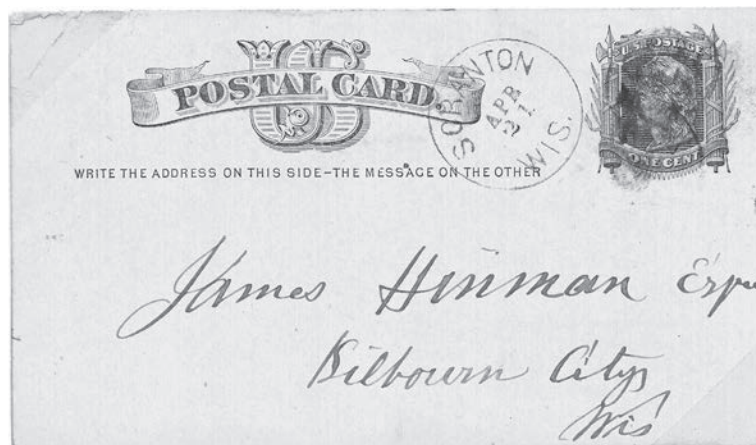 US
POSTAL CARD
SCRANTON
APR
21
WIS.
U.S. POSTAGE
ONE CENT
WRITE THE ADDRESS ON THIS SIDE-THE MESSAGE ON THE OTHER
James Hinman
Kilbourn City
Wis